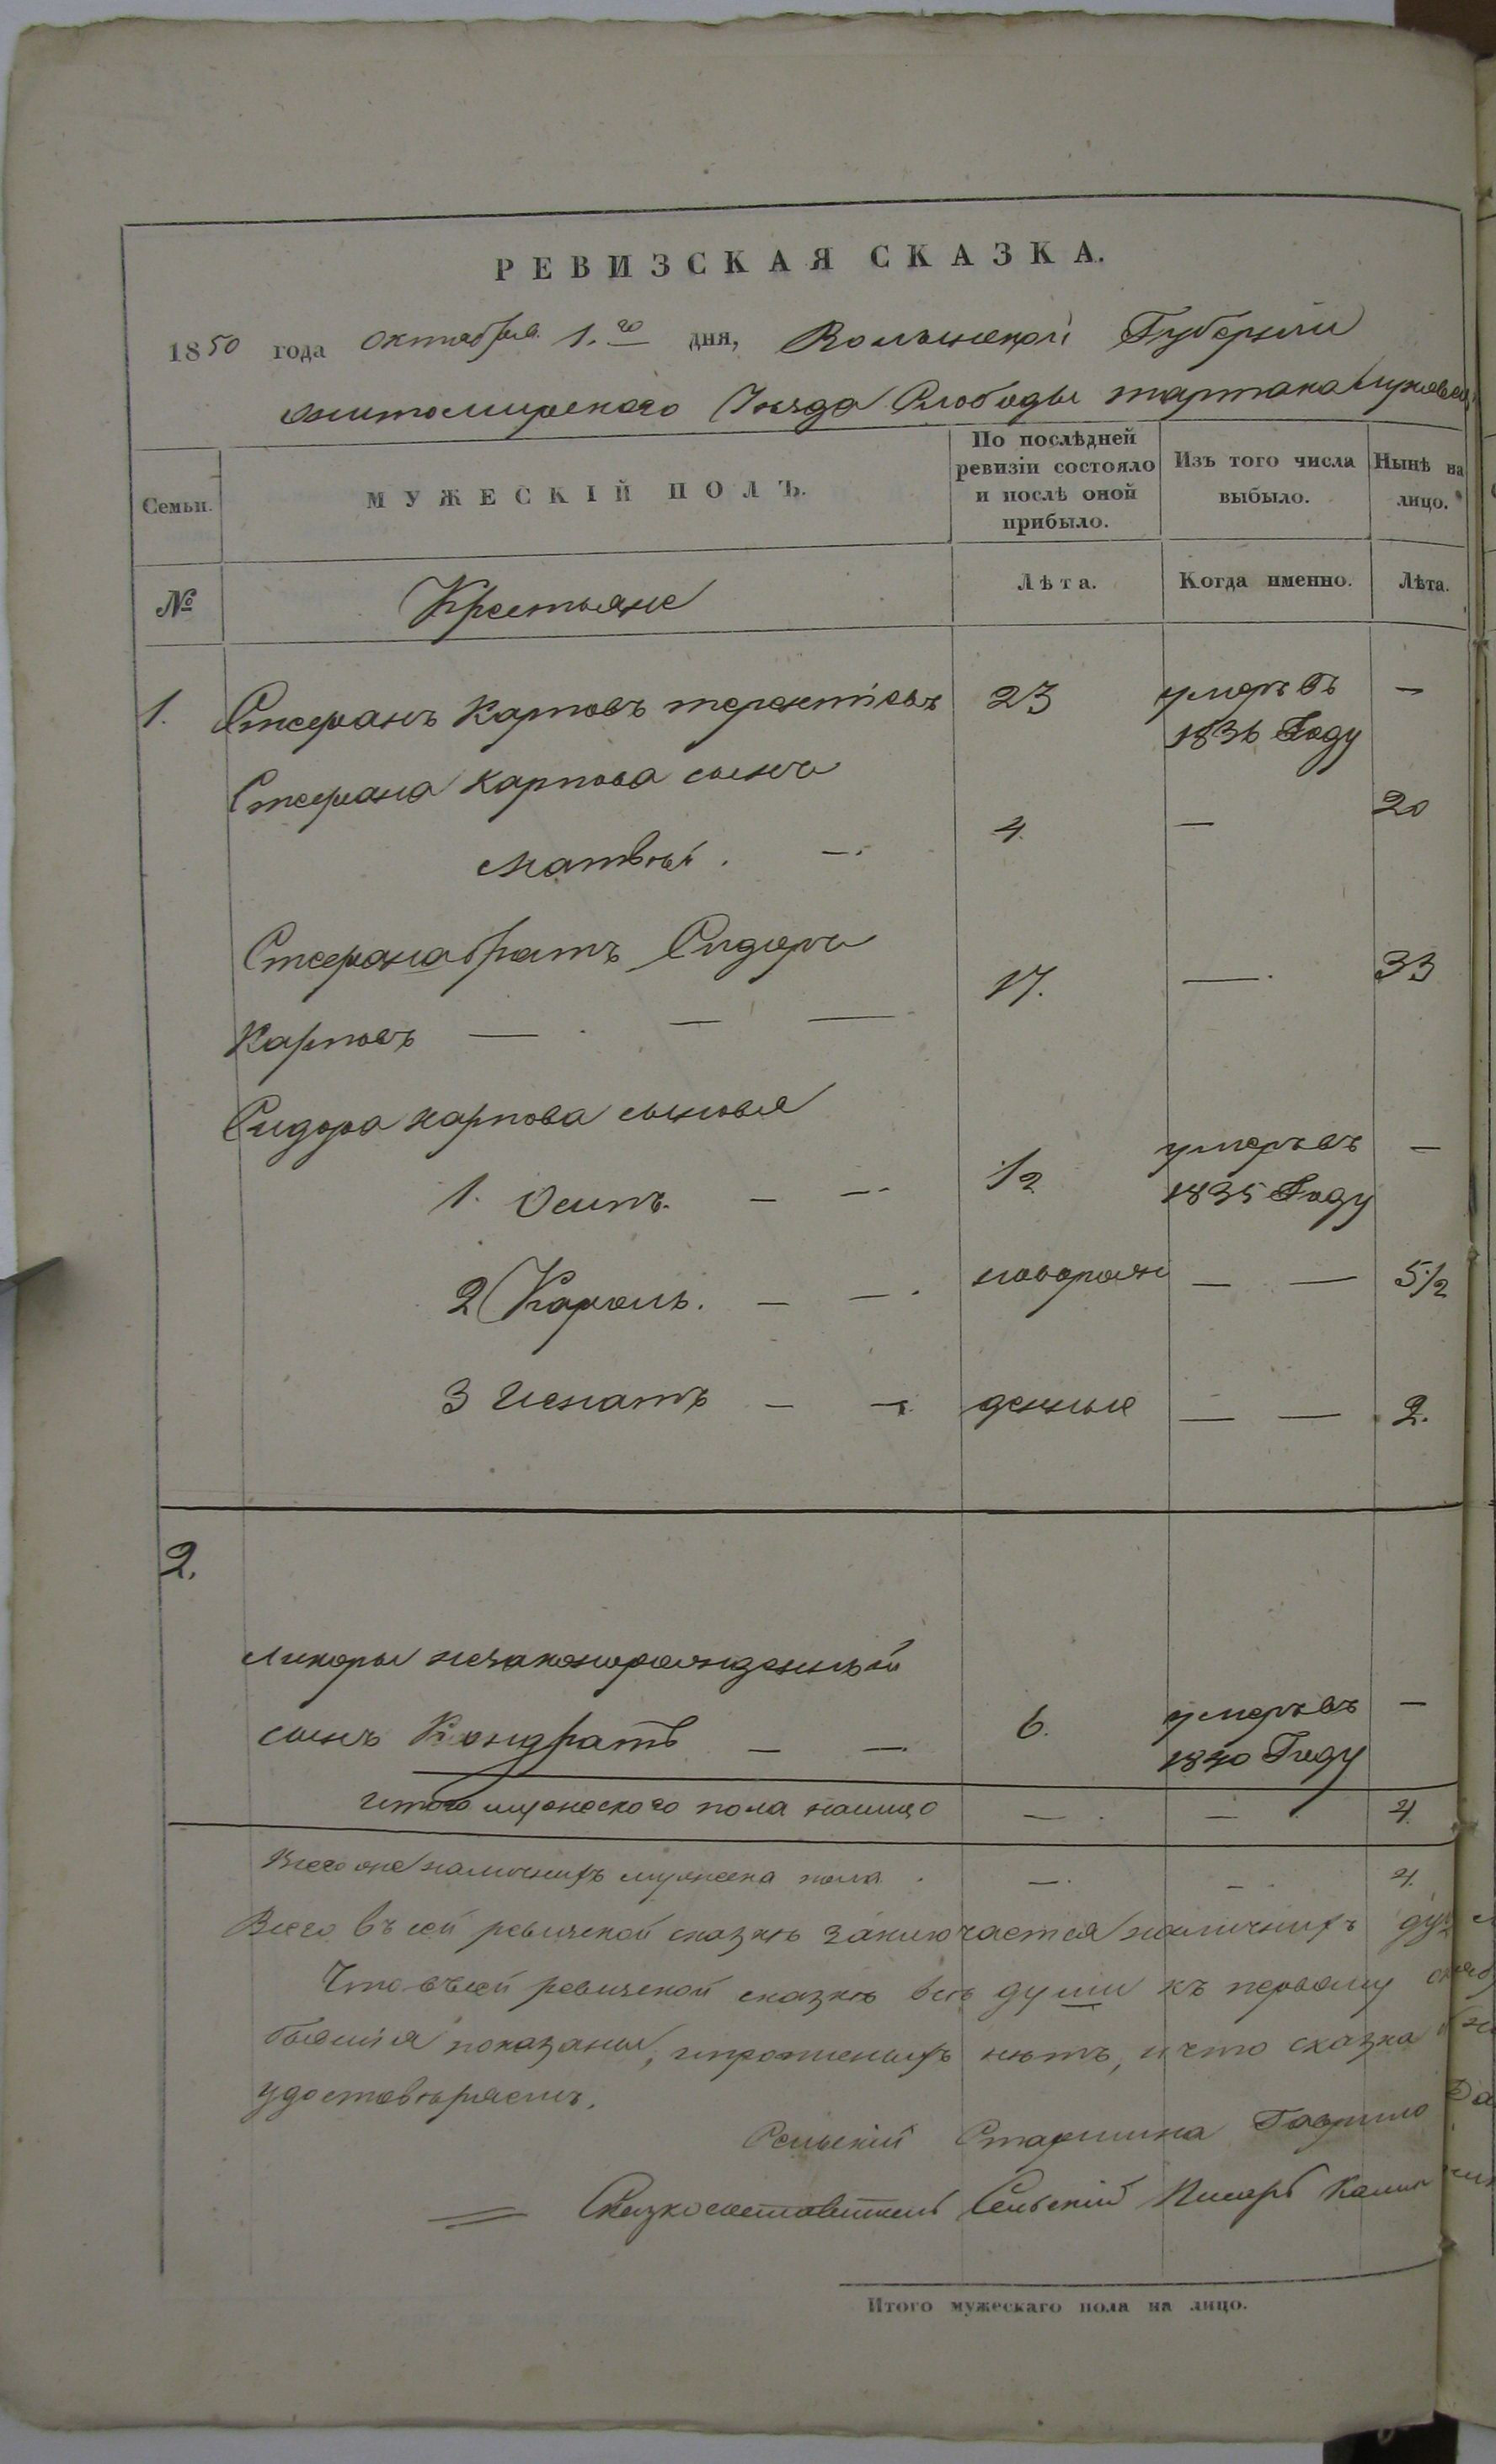 РЕВИЗСКАЯ СКАЗКА.
1850 года октября 1.го дня, Волынской Губерніи
Житомирскаго Уезда Слободы тартака
Семьи.
МУЖЕСКІЙ ПОЛЪ.
По послѣдней ревизіи состояло и послѣ оной прибыло.
Изъ того числа выбыло.
Нынѣ на лицо.
№
Крестьяне
Лѣта.
Когда именно.
Лѣта.
1. Стефанъ Карповъ терентіевъ 23 умеръ въ —
1836 Году
Стефана Карпова сынъ
Матвѣй . —. 4. — 20
Стефана братъ Сидоръ
Карповъ — . — — 17. —. 33
Сидора карпова сыновья
1. Осипъ. — —. 1/2 умеръ въ —
1835 Году
2 Кароль. — —. новорож — — 5 1/2
3 Игнатъ — —. денные — — 2.
2.
незаконнорожденный
сынъ Кондратъ — —. 6. умеръ въ —
1840 Году
Итого мужеского пола налицо —. —. 4.
Всего же наличныхъ мужеска пола . —. —. 4.
Всего въ сей ревизской сказкѣ заключается наличныхъ
Что въ сей ревизской сказкѣ всѣ души къ первому
показаны, и прописныхъ нѣтъ, и что сказка
удостовѣряемъ.
Сельскій Старшина Гаврило
Сказкосоставитель Сельскій Писарь
Итого мужескаго пола на лицо.